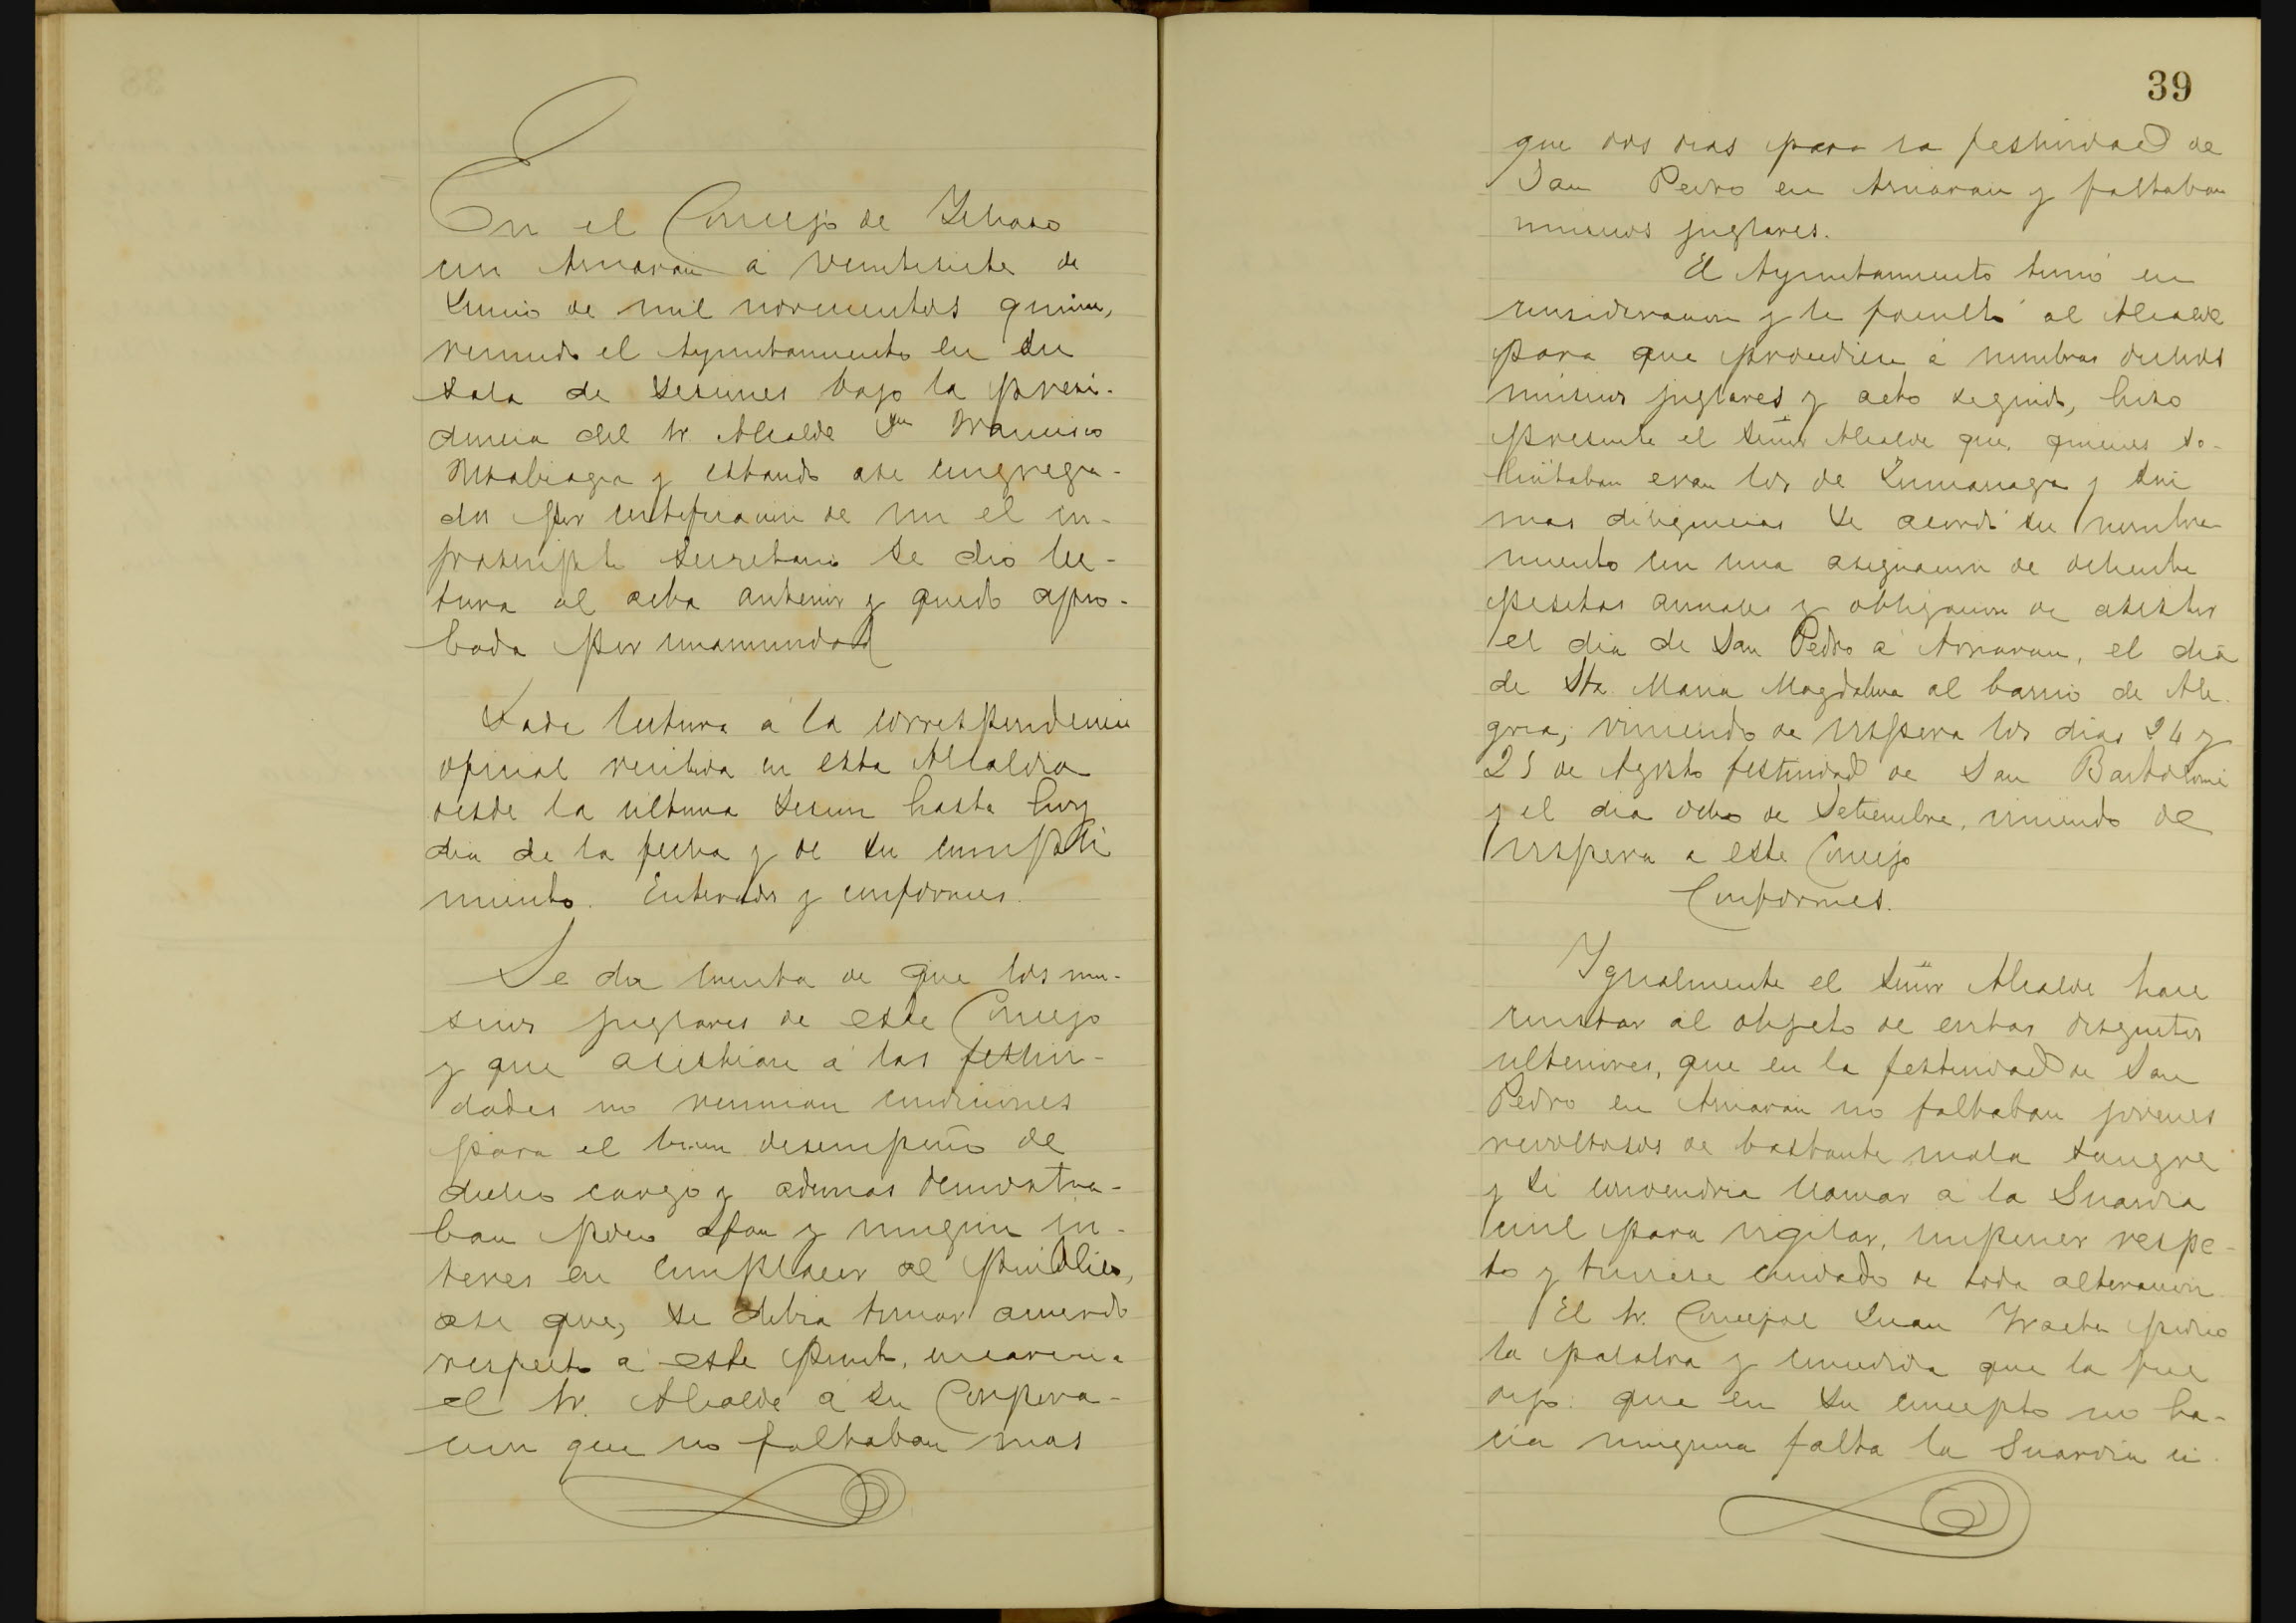 En el Concejo de Ichaso
con Arnaran á veintisiete de
Junio de mil novecientos quince,
reunido el Ayuntamiento en su
sala de sesiones bajo la presi-
dencia del Sr. Alcalde Dn Francisco
y estando asi congrega-
dos por certificacion de mi el in-
frascripto Secretario se dio lec-
tura al acta anterior y quedó apro-
bada por unanimidad
Dada lectura á la correspondencia
oficial recibida en esta Alcaldia
desde la ultima sesion hasta hoy
dia de la fecha y de su cumpli
miento. Enterados y conformes.
Se da cuenta de que los mu-
sicos juglares de este Concejo
y que asistian á las festivi-
dades no reunian condiciones
para el buen desempeño de
dicho cargo y ademas demostra-
ban poco afan y ningun in-
teres en complacer al público,
asi que, se debia tomar acuerdo
respecto á este punto, encarecia
el Sr. Alcalde á su Corpora-
cion que no faltaban mas
39
que dos dias para la festividad de
San Pedro en Arnaran y faltaban
músicos juglares.
El Ayuntamiento tomó en
consideracion y le facultó al Alcalde
para que procediese á nombrar dichos
músicos juglares y acto seguido, hizo
presente el Señor Alcalde que, quienes so-
licitaban eran los de Zumarraga y sin
mas diligencias se acordó su nombra
miento con una asignacion de ochenta
pesetas anuales y obligacion de asistir
el dia de San Pedro á Arnaran, el dia
de Sta. Maria Magdalena al barrio de Ale
gria, viniendo de vispera los dias 24 y
25 de Agosto festividad de San Bartolomé
y el dia ocho de Setiembre, viniendo de
vispera a este Concejo
Conformes.
Igualmente el Señor Alcalde hace
constar al objeto de evitar disgustos
ulteriores, que en la festividad de San
Pedro en Arnaran no faltaban jovenes
revoltosos de bastante mala sangre
y si convendria llamar á la Guardia
civil para vigilar, imponer respe-
to y tuviese cuidado de toda alteracion
El Sr. Concejal Juan Iraeta pidió
la palabra y concedida que la fue
dijo: que en su concepto no ha-
cia ninguna falta la Guardia ci-